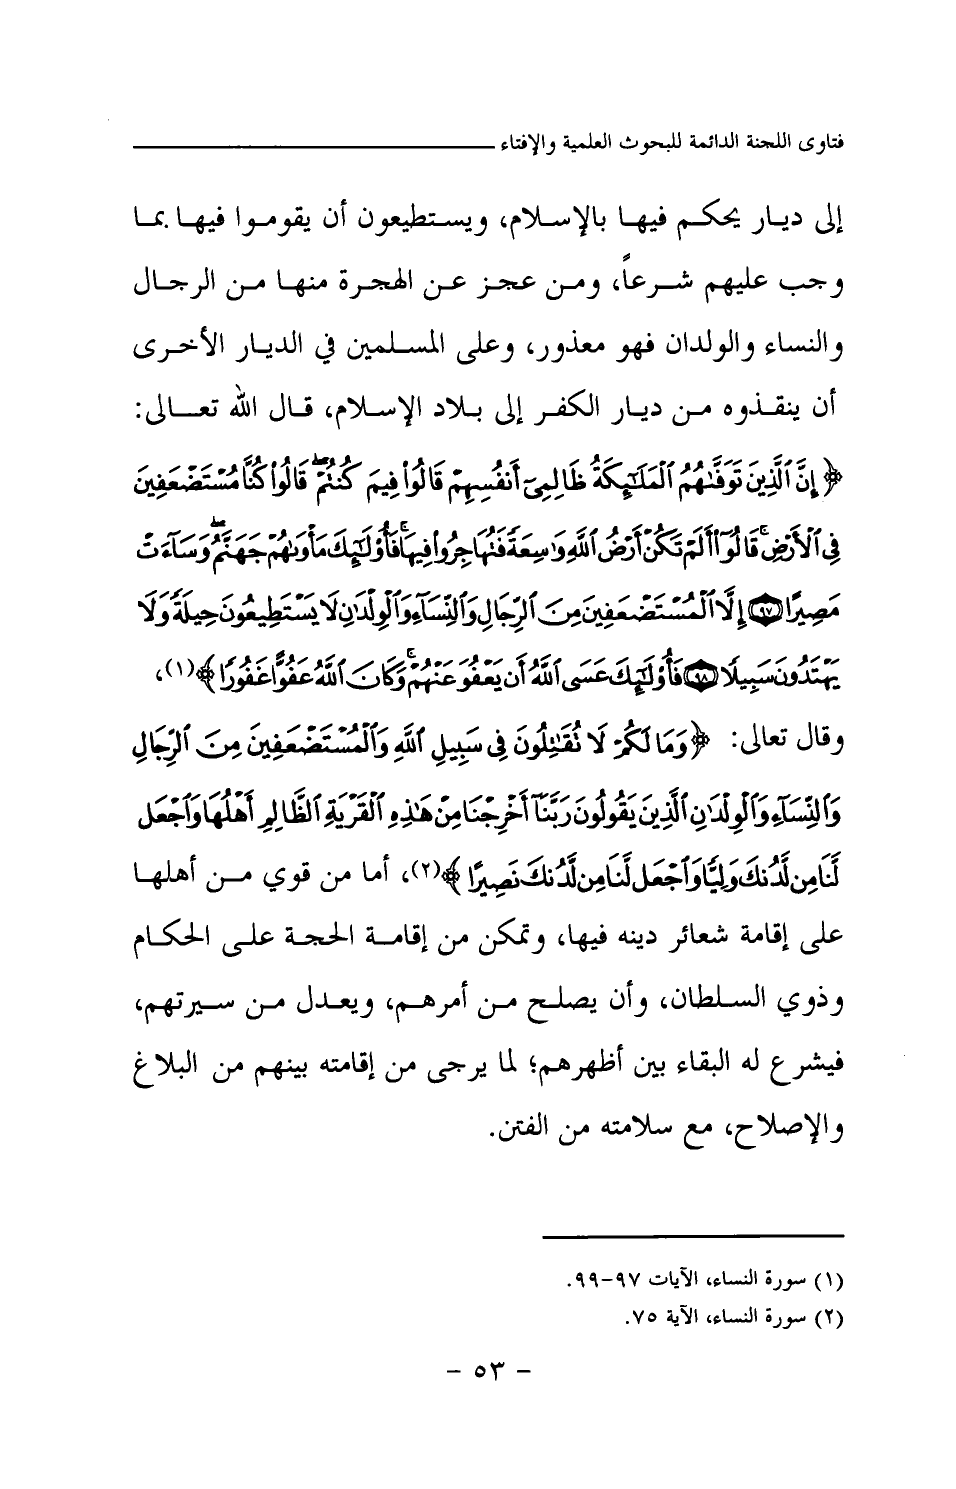 فتاوى اللجنة الدائمة للبحوث العلمية والإفتاء
إلى ديار يحكم فيها بالإسلام، ويستطيعون أن يقوموا فيها بما
وجب عليهم شرعاً، ومن عجز عن الهجرة منها من الرجال
والنساء والولدان فهو معذور، وعلى المسلمين في الديار الأخرى
أن ينقذوه من ديار الكفر إلى بلاد الإسلام، قال الله تعالى:
﴿إِنَّ ٱلَّذِينَ تَوَفَّىٰهُمُ ٱلۡمَلَٰٓئِكَةُ ظَالِمِيٓ أَنفُسِهِمۡ قَالُواْ فِيمَ كُنتُمۡۖ قَالُواْ كُنَّا مُسۡتَضۡعَفِينَ
فِي ٱلۡأَرۡضِۚ قَالُوٓاْ أَلَمۡ تَكُنۡ أَرۡضُ ٱللَّهِ وَٰسِعَةٗ فَتُهَاجِرُواْ فِيهَاۚ فَأُوْلَٰٓئِكَ مَأۡوَىٰهُمۡ جَهَنَّمُۖ وَسَآءَتۡ
مَصِيرًا ٩٧ إِلَّا ٱلۡمُسۡتَضۡعَفِينَ مِنَ ٱلرِّجَالِ وَٱلنِّسَآءِ وَٱلۡوِلۡدَٰنِ لَا يَسۡتَطِيعُونَ حِيلَةٗ وَلَا
يَهۡتَدُونَ سَبِيلٗا ٩٨ فَأُوْلَٰٓئِكَ عَسَى ٱللَّهُ أَن يَعۡفُوَ عَنۡهُمۡۚ وَكَانَ ٱللَّهُ عَفُوًّا غَفُورٗا﴾(١)،
وقال تعالى: ﴿وَمَا لَكُمۡ لَا تُقَٰتِلُونَ فِي سَبِيلِ ٱللَّهِ وَٱلۡمُسۡتَضۡعَفِينَ مِنَ ٱلرِّجَالِ
وَٱلنِّسَآءِ وَٱلۡوِلۡدَٰنِ ٱلَّذِينَ يَقُولُونَ رَبَّنَآ أَخۡرِجۡنَا مِنۡ هَٰذِهِ ٱلۡقَرۡيَةِ ٱلظَّالِمِ أَهۡلُهَا وَٱجۡعَل
لَّنَا مِن لَّدُنكَ وَلِيّٗا وَٱجۡعَل لَّنَا مِن لَّدُنكَ نَصِيرًا﴾(٢)، أما من قوي من أهلها
على إقامة شعائر دينه فيها، وتمكن من إقامة الحجة على الحكام
وذوي السلطان، وأن يصلح من أمرهم، ويعدل من سيرتهم،
فيشرع له البقاء بين أظهرهم؛ لما يرجى من إقامته بينهم من البلاغ
والإصلاح، مع سلامته من الفتن.
(١) سورة النساء، الآيات ٩٧-٩٩.
(٢) سورة النساء، الآية ٧٥.
- ٥٣ -